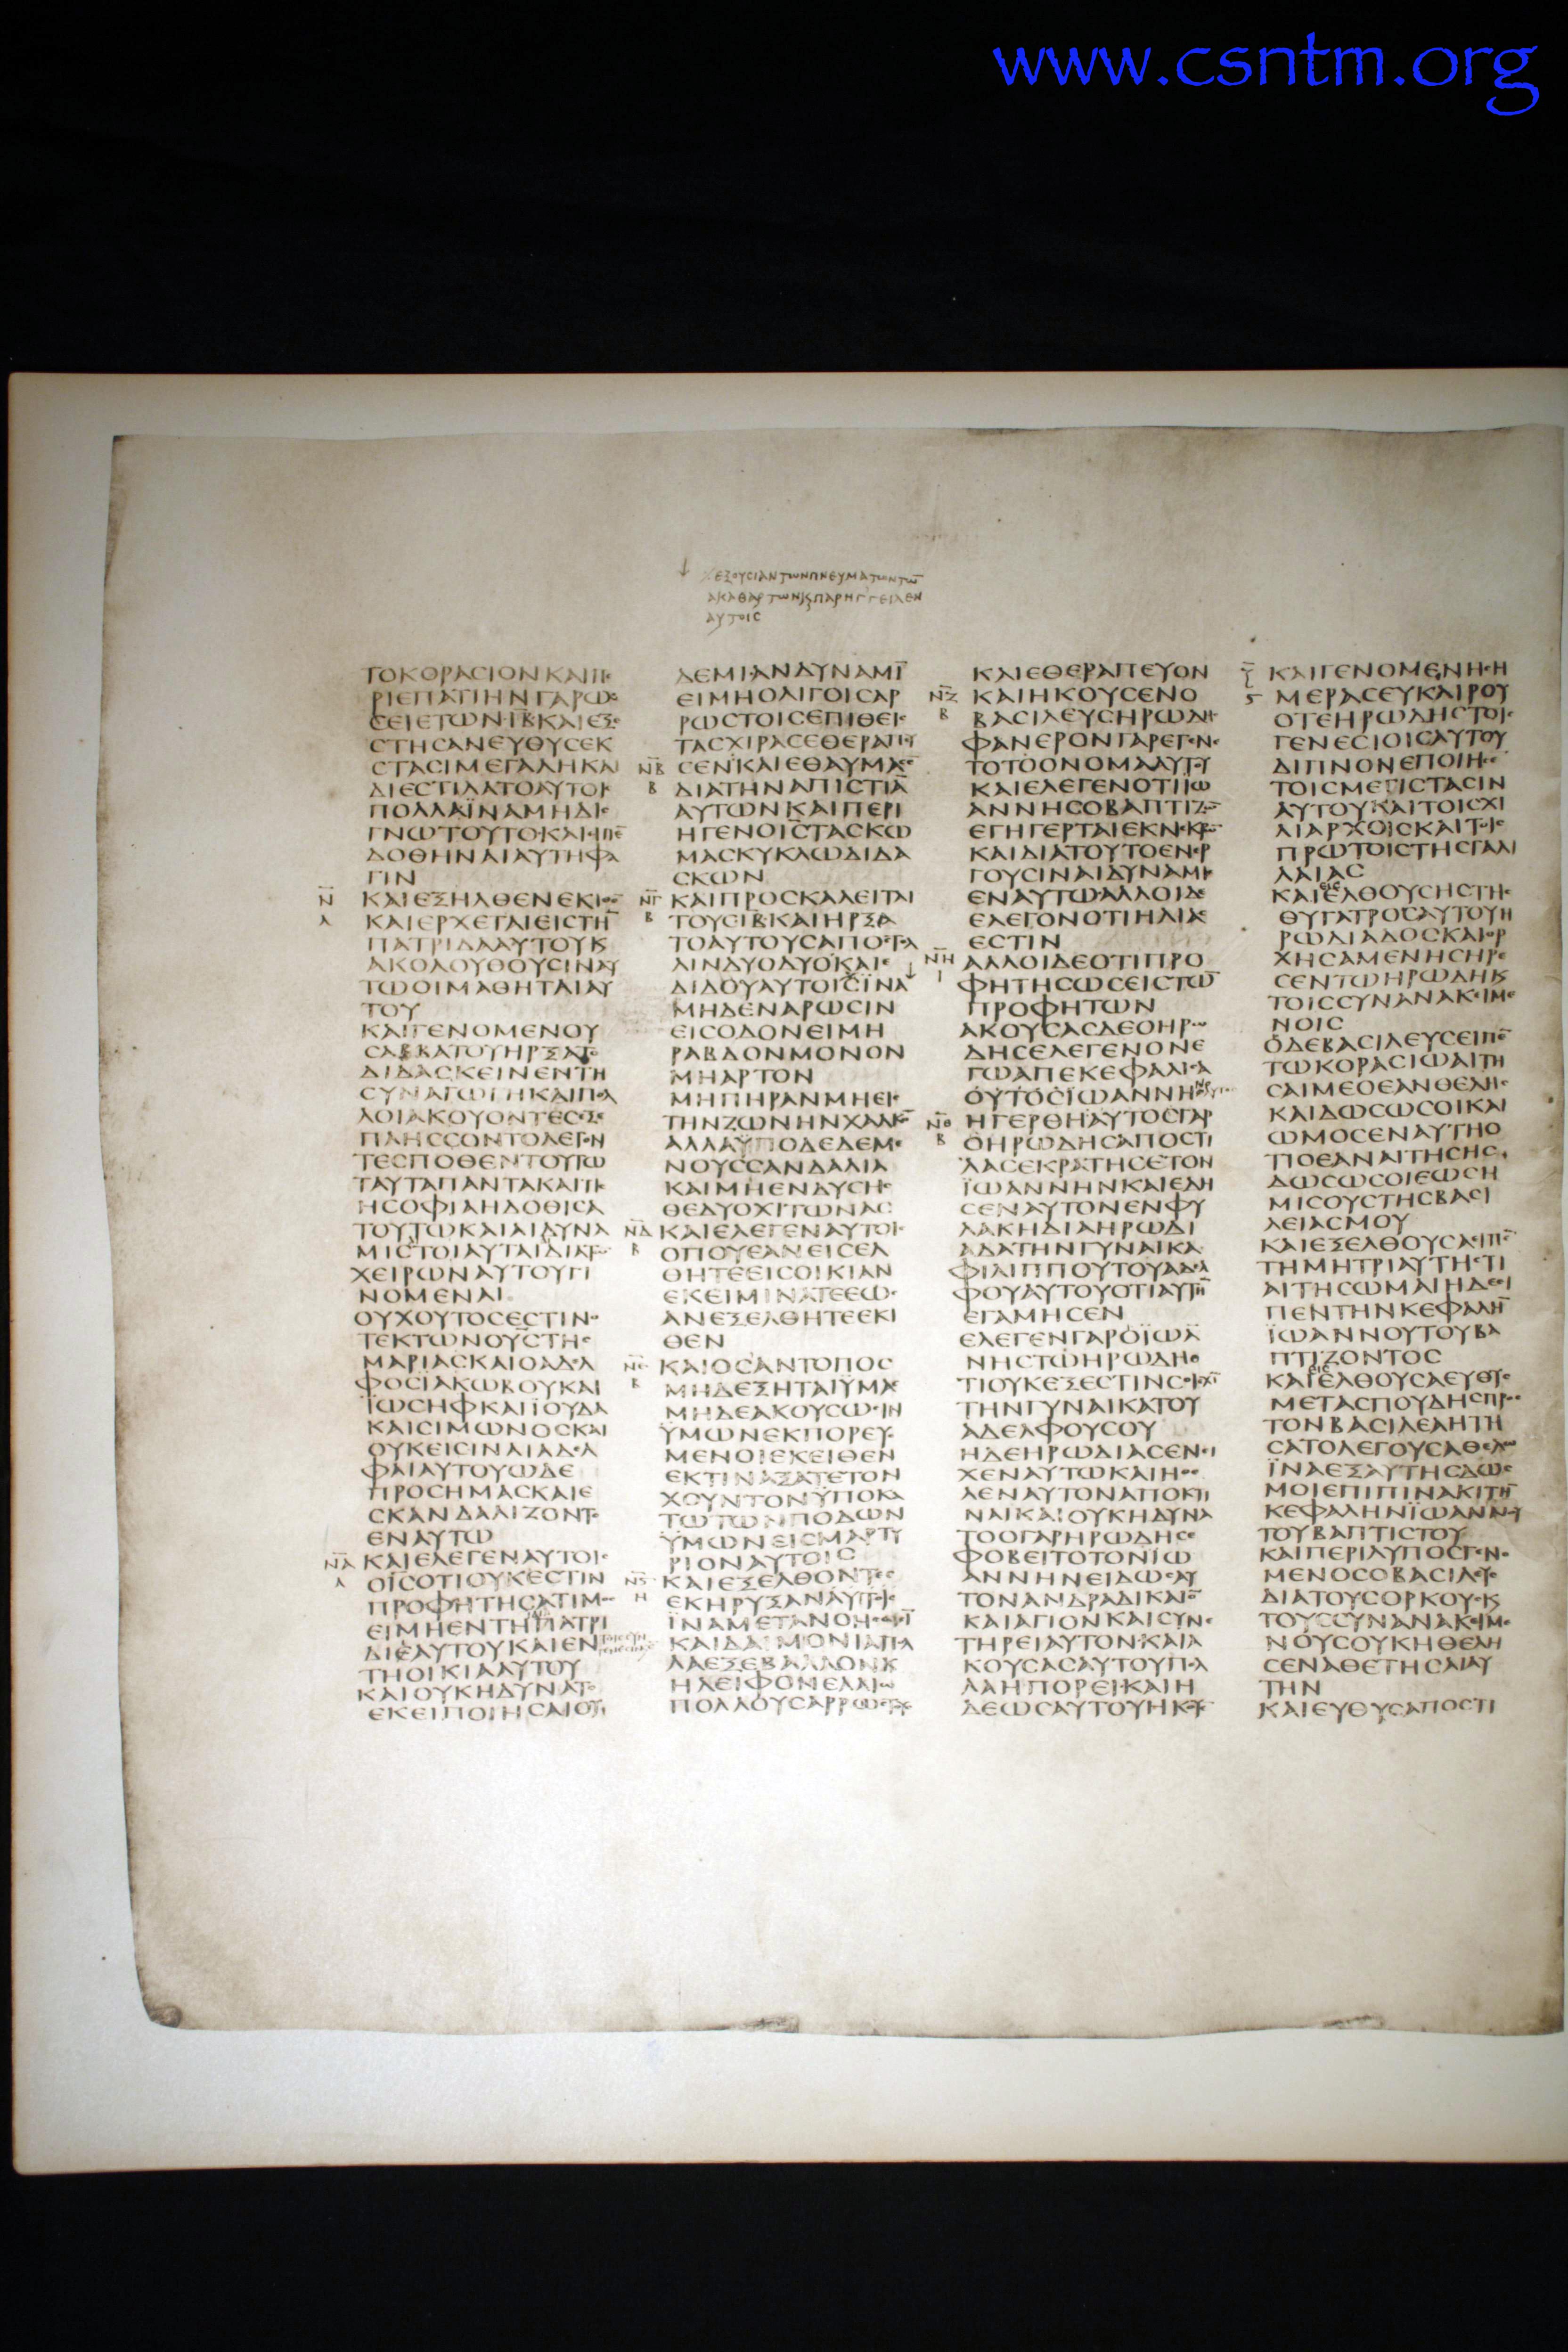 www.csntm.org
ΕΞΟΥCΙΑΝΤΩΝΠΝΕΥΜΑΤΩΝΤΩ̅
ΑΚΑΘΑΡΤΩΝϗΠΑΡΗΓΓΕΙΛΕΝ
ΑΥΤΟΙC
ΤΟΚΟΡΑCΙΟΝΚΑΙΠΕ
ΡΙΕΠΑΤΙΗΝΓΑΡΩ
CΕΙΕΤΩΝΙΒΚΑΙΕΞΕ
CΤΗCΑΝΕΥΘΥCΕΚ
CΤΑCΙΜΕΓΑΛΗΚΑΙ
ΔΙΕCΤΙΛΑΤΟΑΥΤΟΙ
ΠΟΛΛΑΪΝΑΜΗΔΙC
ΓΝΩΤΟΥΤΟΚΑΙΙΠΕ̅
ΔΟΘΗΝΑΙΑΥΤΗΦΑ
ΓΙΝ
Ν̅ ΚΑΙΕΞΗΛΘΕΝΕΚΙΘΕ̅
Α ΚΑΙΕΡΧΕΤΑΙΕΙCΤΗ̅
ΠΑΤΡΙΔΑΑΥΤΟΥϗ
ΑΚΟΛΟΥΘΟΥCΙΝΑΥ
ΤΩΟΙΜΑΘΗΤΑΙΑΥ
ΤΟΥ
ΚΑΙΓΕΝΟΜΕΝΟΥ
CΑΒΒΑΤΟΥΗΡΞΑΤΟ
ΔΙΔΑCΚΕΙΝΕΝΤΗ
CΥΝΑΓΩΓΗΚΑΙΠΟΛ
ΛΟΙΑΚΟΥΟΝΤΕCΕΞΕ
ΠΛΗCCΟΝΤΟΛΕΓΟΝ
ΤΕCΠΟΘΕΝΤΟΥΤΩ
ΤΑΥΤΑΠΑΝΤΑΚΑΙΤΙC
ΗCΟΦΙΑΗΔΟΘΙCΑ
ΤΟΥΤΩΚΑΙΑΙΔΥΝΑ
ΜΙCΤΟΙΑΥΤΑΙΔΙΑΤΩ
ΧΕΙΡΩΝΑΥΤΟΥΓΙ
ΝΟΜΕΝΑΙ
ΟΥΧΟΥΤΟCΕCΤΙΝΟ
ΤΕΚΤΩΝΟΥCΤΗC
ΜΑΡΙΑCΚΑΙΟΑΔΕΛ
ΦΟCΙΑΚΩΒΟΥΚΑΙ
ΪΩCΗΦΚΑΙΪΟΥΔΑ
ΚΑΙCΙΜΩΝΟCΚΑΙ
ΟΥΚΕΙCΙΝΑΙΑΔΕΛ
ΦΑΙΑΥΤΟΥΩΔΕ
ΠΡΟCΗΜΑCΚΑΙΕ
CΚΑΝΔΑΛΙΖΟΝΤΟ
ΕΝΑΥΤΩ
ΝΑ̅ ΚΑΙΕΛΕΓΕΝΑΥΤΟΙC
Α ΟΙCΟΤΙΟΥΚΕCΤΙΝ
ΠΡΟΦΗΤΗCΑΤΙΜΟC
ΕΙΜΗΕΝΤΗΠΑΤΡΙ
ΔΙΕΑΥΤΟΥΚΑΙΕΝ
ΤΗΟΙΚΙΑΑΥΤΟΥ
ΚΑΙΟΥΚΗΔΥΝΑΤΟ
ΕΚΕΙΠΟΙΗCΑΙΟΥ
ΔΕΜΙΑΝΔΥΝΑΜΙ̅
ΕΙΜΗΟΛΙΓΟΙCΑΡ
ΡΩCΤΟΙCΕΠΙΘΕΙC
ΤΑCΧΙΡΑCΕΘΕΡΑΠΕΥ
ΝΒ̅ CΕΝΚΑΙΕΘΑΥΜΑCΕ̅
Β ΔΙΑΤΗΝΑΠΙCΤΙΑ̅
ΑΥΤΩΝΚΑΙΠΕΡΙ
ΗΓΕΝΟΙCΤΑCΚΩ
ΜΑCΚΥΚΛΩΔΙΔΑ
CΚΩΝ
ΝΓ̅ ΚΑΙΠΡΟCΚΑΛΕΙΤΑΙ
Β ΤΟΥCΙΒΚΑΙΗΡΞΑ
ΤΟΑΥΤΟΥCΑΠΟCΤΕΛ
ΛΙΝΔΥΟΔΥΟΚΑΙΕ
ΔΙΔΟΥΑΥΤΟΙCΪΝΑ
ΜΗΔΕΝΑΡΩCΙΝ
ΕΙCΟΔΟΝΕΙΜΗ
ΡΑΒΔΟΝΜΟΝΟΝ
ΜΗΑΡΤΟΝ
ΜΗΠΗΡΑΝΜΗΕΙC
ΤΗΝΖΩΝΗΝΧΑΛΚΟ̅
ΑΛΛΑΫΠΟΔΕΔΕΜΕ
ΝΟΥCCΑΝΔΑΛΙΑ
ΚΑΙΜΗΕΝΔΥCΗC
ΘΕΔΥΟΧΙΤΩΝΑC
ΝΔ̅ ΚΑΙΕΛΕΓΕΝΑΥΤΟΙC
Β ΟΠΟΥΕΑΝΕΙCΕΛ
ΘΗΤΕΕΙCΟΙΚΙΑΝ
ΕΚΕΙΜΙΝΑΤΕΕΩC
ΑΝΕΞΕΛΘΗΤΕΕΚΙ
ΘΕΝ
ΝΕ̅ ΚΑΙΟCΑΝΤΟΠΟC
Β ΜΗΔΕΞΗΤΑΙΫΜΑC
ΜΗΔΕΑΚΟΥCΩCΙΝ
ΫΜΩΝΕΚΠΟΡΕΥΟ
ΜΕΝΟΙΕΚΕΙΘΕΝ
ΕΚΤΙΝΑΞΑΤΕΤΟΝ
ΧΟΥΝΤΟΝΫΠΟΚΑ
ΤΩΤΩΝΠΟΔΩΝ
ΫΜΩΝΕΙCΜΑΡΤΥ
ΡΙΟΝΑΥΤΟΙC
ΝϚ̅ ΚΑΙΕΞΕΛΘΟΝΤΕC
Η ΕΚΗΡΥΞΑΝΑΥΤΟΙC
ΪΝΑΜΕΤΑΝΟΗCΩCΙ̅
ΚΑΙΔΑΙΜΟΝΙΑΠΟΛ
ΛΑΕΞΕΒΑΛΛΟΝϗ
ΗΛΕΙΦΟΝΕΛΑΙΩ
ΠΟΛΛΟΥCΑΡΡΩCΤΟΥC
ΚΑΙΕΘΕΡΑΠΕΥΟΝ
ΝΖ̅ ΚΑΙΗΚΟΥCΕΝΟ
Β ΒΑCΙΛΕΥCΗΡΩΔΗC
ΦΑΝΕΡΟΝΓΑΡΕΓΕΝΕ
ΤΟΤΟΟΝΟΜΑΑΥΤΟΥ
ΚΑΙΕΛΕΓΕΝΟΤΙΪΩ
ΑΝΝΗCΟΒΑΠΤΙΖΩ̅
ΕΓΗΓΕΡΤΑΙΕΚΝΕΚΡΩ̅
ΚΑΙΔΙΑΤΟΥΤΟΕΝΕΡ
ΓΟΥCΙΝΑΙΔΥΝΑΜΙC
ΕΝΑΥΤΩΑΛΛΟΙΔΕ
ΕΛΕΓΟΝΟΤΙΗΛΙΑC
ΕCΤΙΝ
ΝΗ̅ ΑΛΛΟΙΔΕΟΤΙΠΡΟ
Ι ΦΗΤΗCΩCΕΙCΤΩ̅
ΠΡΟΦΗΤΩΝ
ΑΚΟΥCΑCΔΕΟΗΡΩ
ΔΗCΕΛΕΓΕΝΟΝΕ
ΓΩΑΠΕΚΕΦΑΛΙCΑ
ΟΥΤΟCΪΩΑΝΝΗC
ΝΘ̅ ΗΓΕΡΘΗΑΥΤΟCΓΑΡ
Β ΟΗΡΩΔΗCΑΠΟCΤΙ
ΛΑCΕΚΡΑΤΗCΕΤΟΝ
ΪΩΑΝΝΗΝΚΑΙΕΔΗ
CΕΝΑΥΤΟΝΕΝΦΥ
ΛΑΚΗΔΙΑΗΡΩΔΙ
ΑΔΑΤΗΝΓΥΝΑΙΚΑ
ΦΙΛΙΠΠΟΥΤΟΥΑΔΕΛ
ΦΟΥΑΥΤΟΥΟΤΙΑΥΤΗ̅
ΕΓΑΜΗCΕΝ
ΕΛΕΓΕΝΓΑΡΟΪΩΑ̅
ΝΗCΤΩΗΡΩΔΗΟ
ΤΙΟΥΚΕΞΕCΤΙΝCΟΙΕΧΙ̅
ΤΗΝΓΥΝΑΙΚΑΤΟΥ
ΑΔΕΛΦΟΥCΟΥ
ΗΔΕΗΡΩΔΙΑCΕΝΕΙ
ΧΕΝΑΥΤΩΚΑΙΗΘΕ
ΛΕΝΑΥΤΟΝΑΠΟΚΤΙ
ΝΑΙΚΑΙΟΥΚΗΔΥΝΑ
ΤΟΟΓΑΡΗΡΩΔΗCΕ
ΦΟΒΕΙΤΟΤΟΝΪΩ
ΑΝΝΗΝΕΙΔΩCΑΥ
ΤΟΝΑΝΔΡΑΔΙΚΑΙΟ̅
ΚΑΙΑΓΙΟΝΚΑΙCΥΝΕ
ΤΗΡΕΙΑΥΤΟΝΚΑΙΑ
ΚΟΥCΑCΑΥΤΟΥΠΟΛ
ΛΑΗΠΟΡΕΙΚΑΙΗ
ΔΕΩCΑΥΤΟΥΗΚΟΥΕ
Ξ̅ ΚΑΙΓΕΝΟΜΕΝΗCΗ
Ϛ ΜΕΡΑCΕΥΚΑΙΡΟΥ
ΟΤΕΗΡΩΔΗCΤΟΙC
ΓΕΝΕCΙΟΙCΑΥΤΟΥ
ΔΙΠΝΟΝΕΠΟΙΗCΕ
ΤΟΙCΜΕΓΙCΤΑCΙΝ
ΑΥΤΟΥΚΑΙΤΟΙCΧΙ
ΛΙΑΡΧΟΙCΚΑΙΤΟΙC
ΠΡΩΤΟΙCΤΗCΓΑΛΙ
ΛΑΙΑC
ΚΑΙΕΛΘΟΥCΗCΤΗC
ΘΥΓΑΤΡΟCΑΥΤΟΥΗ
ΡΩΔΙΑΔΟCΚΑΙΟΡ
ΧΗCΑΜΕΝΗCΗΡΕ
CΕΝΤΩΗΡΩΔΗϗ
ΤΟΙCCΥΝΑΝΑΚΙΜΕ
ΝΟΙC
ΟΔΕΒΑCΙΛΕΥCΕΙΠΕ̅
ΤΩΚΟΡΑCΙΩΑΙΤΗ
CΑΙΜΕΟΕΑΝΘΕΛΗC
ΚΑΙΔΩCΩCΟΙΚΑΙ
ΩΜΟCΕΝΑΥΤΗΟ
ΤΙΟΕΑΝΑΙΤΗCΗC
ΔΩCΩCΟΙΕΩCΗ
ΜΙCΟΥCΤΗCΒΑCΙ
ΛΕΙΑCΜΟΥ
ΚΑΙΕΞΕΛΘΟΥCΑΕΙΠΕ̅
ΤΗΜΗΤΡΙΑΥΤΗCΤΙ
ΑΙΤΗCΩΜΑΙΗΔΕΕΙ
ΠΕΝΤΗΝΚΕΦΑΛΗ̅
ΪΩΑΝΝΟΥΤΟΥΒΑ
ΠΤΙΖΟΝΤΟC
ΚΑΙΕΛΘΟΥCΑΕΥΘΥC
ΜΕΤΑCΠΟΥΔΗCΠΡΟC
ΤΟΝΒΑCΙΛΕΑΗΤΗ
CΑΤΟΛΕΓΟΥCΑΘΕΛΩ
ΪΝΑΕΞΑΥΤΗCΔΩC
ΜΟΙΕΠΙΠΙΝΑΚΙΤΗ̅
ΚΕΦΑΛΗΝΪΩΑΝΝΟΥ
ΤΟΥΒΑΠΤΙCΤΟΥ
ΚΑΙΠΕΡΙΛΥΠΟCΓΕΝΟ
ΜΕΝΟCΟΒΑCΙΛΕΥC
ΔΙΑΤΟΥCΟΡΚΟΥCϗ
ΤΟΥCCΥΝΑΝΑΚΙΜΕ
ΝΟΥCΟΥΚΗΘΕΛΗ
CΕΝΑΘΕΤΗCΑΙΑΥ
ΤΗΝ
ΚΑΙΕΥΘΥCΑΠΟCΤΙ